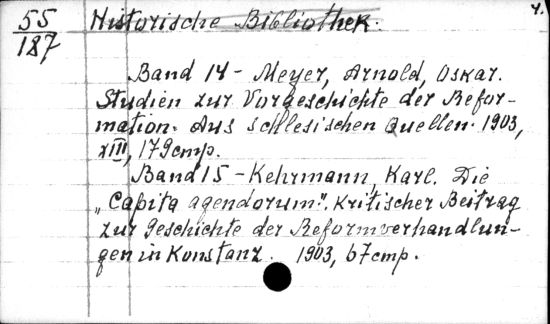 55 Historische Bibliothek. 4.
187
Band 14 - Meyer, Arnold, Oskar.
Studien zur Vorgeschichte der Refor-
mation. Aus schlesischen Quellen. 1903,
XIII, 179 стр.
Band 15 - Kehrmann, Karl. Die
„Capita agendorum". Kritischer Beitrag
zur Geschichte der Reformverhandlun-
gen in Konstanz. 1903, 67 стр.